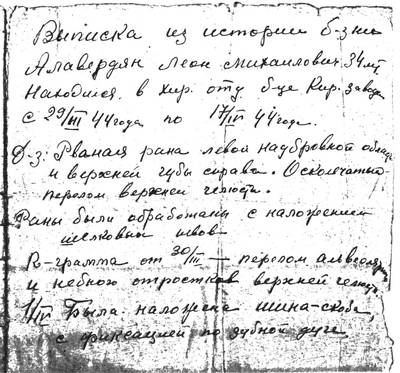 Выписка из истории б-зни
Алавердян Леон Михайлович 34 л,
Находился в хир. отд б-це Кир. завода
с 29/III 44 года по 17/IV 44 года.
Д-з: Рваная рана левой надбровной облас
и верхней губы справа. Оскольчатый
перелом верхней челюсти.
Раны были обработаны с наложением
шелковых швов
R-грамма от 30/III — перелом альвеоляр
и небного отростков верхней челюс
1/IV Была наложена шина-скоба
с фиксацией по зубной дуге